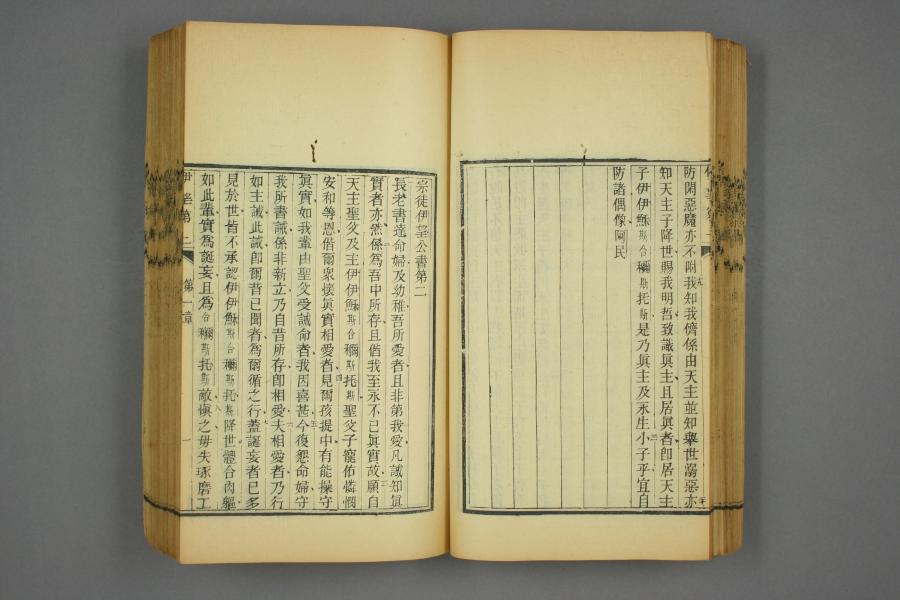 防閑惡魔亦不附我知我儕係由天主並知舉世溺惡亦
知天主子降世賜我明哲致識眞主且居眞者卽居天主
子伊伊穌斯合穪斯托斯是乃眞主及永生小子乎宜自
防諸偶像阿民
宗徒伊望公書第二
長老書達命婦及幼稚吾所愛者且非第我愛凡識知眞
實者亦然係爲吾中所存且偕我至永不已眞實故願自
天主聖父及主伊伊穌斯合穪斯托斯聖父子寵佑憐憫
安和等恩偕爾衆懷眞實相愛者見爾孩提中有能操守
眞實如我輩由聖父受誡命者我因喜甚今復懇命婦守
我所書誡係非新立乃自昔所存卽相愛夫相愛者乃行
如主誡此誡卽爾昔已聞者爲爾循之行蓋誕妄者已多
見於世皆不承認伊伊穌斯合穪斯托斯降世體合肉軀
如此輩實爲誕妄且爲合穪斯托斯敵愼之毋失琢磨工
伊望第二
第一章
一